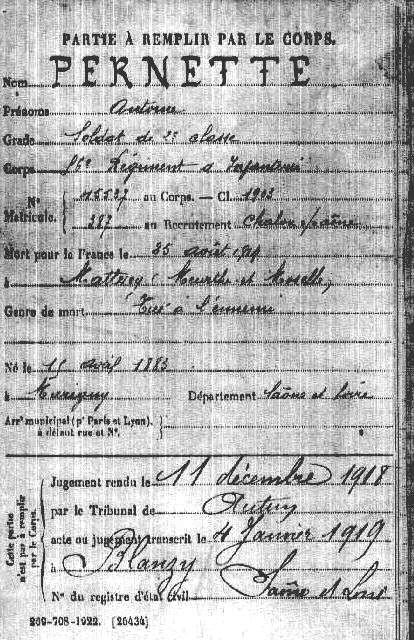 PARTIE À REMPLIR PAR LE CORPS.
Nom PERNETTE
Prénoms Antoine
Grade Soldat de 2e classe
Corps Régiment d'Infanterie
N° Matricule. au Corps. — Cl. 1903
387 au Recrutement Chalon s/Saône
Mort pour la France le 25 août 1914
à (Meurthe et Moselle)
Genre de mort Tué à l'ennemi
Né le avril 1883
à Département Saône et Loire
Arrt municipal (pr Paris et Lyon), à défaut rue et N°.
Cette partie n'est pas à remplir par le Corps.
Jugement rendu le 11 décembre 1918
par le Tribunal de Autun
acte ou jugement transcrit le 4 Janvier 1919
à Blanzy Saône et Loire
N° du registre d'état civil
269-708-1922. [26434]